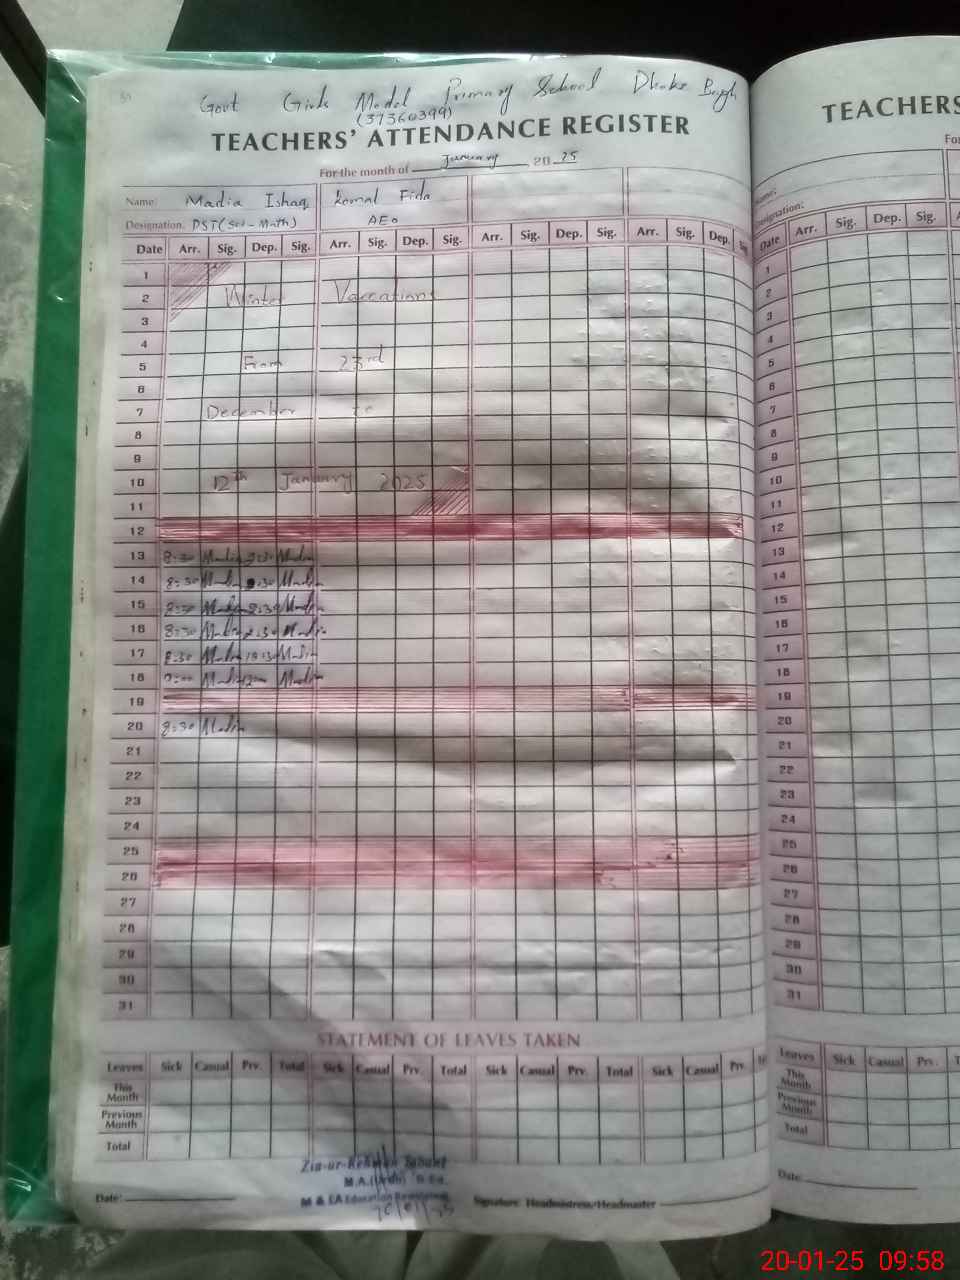 Govt Girls Model Primary School Dhoke Bagh
(37360399)
TEACHERS' ATTENDANCE REGISTER
For the month of January 2025
Name: Madia Ishaq Komal Fida
Designation: PST(Sci-Math) AEO
Date Arr. Sig. Dep. Sig. Arr. Sig. Dep. Sig. Arr. Sig. Dep. Sig. Arr. Sig. Dep.
1
2 Winter Vaccations
3
4
5 From 23rd
6
7 December to
8
9
10 12th January 2025
11
12
13 8:30 Madia Madia
14 8:30 Madia Madia
15 8:30 Madia 2:30 Madia
16 8:30 Madia 2:30 Madia
17 8:30 Madia Madia
18 9:00 Madia Madia
19
20 8:30 Madia
21
22
23
24
25
26
27
28
29
30
31
STATEMENT OF LEAVES TAKEN
Leaves Sick Casual Prv. Total Sick Casual Prv. Total Sick Casual Prv. Total Sick Casual Prv.
This Month
Previous Month
Total
Zia-ur-Rehman
M.A.(Urdu) B.Ed.
M & EA Education
Date: Signature: Headmistress/Headmaster
TEACHERS
Name:
Designation:
Date Arr. Sig. Dep. Sig.
1
2
3
4
5
6
7
8
9
10
11
12
13
14
15
16
17
18
19
20
21
22
23
24
25
26
27
28
29
30
31
Leaves Sick Casual Prv.
This Month
Previous Month
Total
Date:
20-01-25 09:58